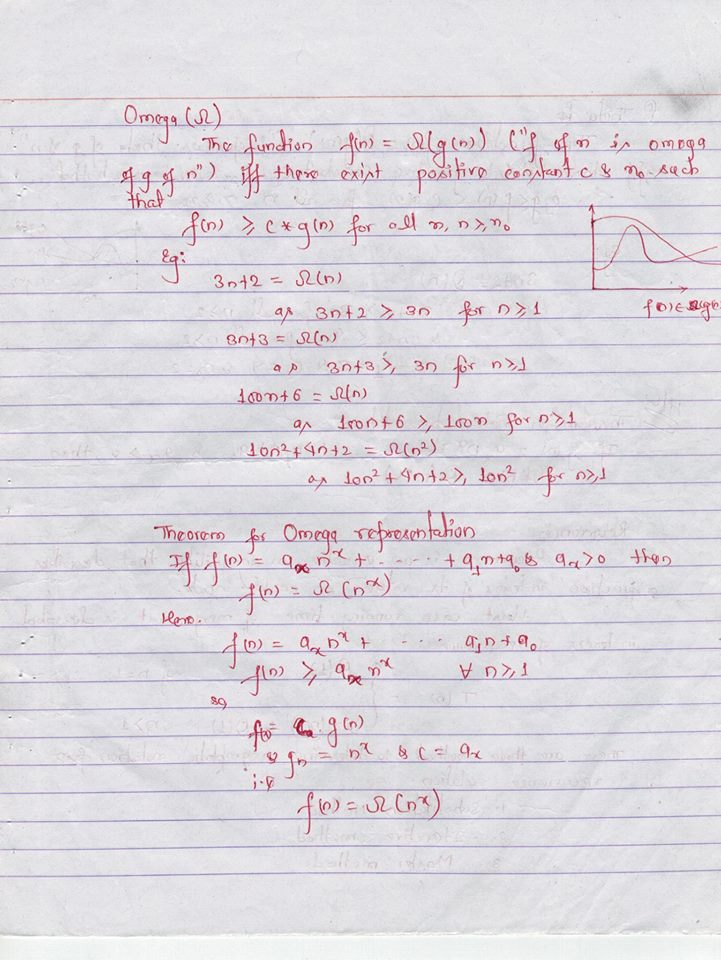 Omega (Ω)
The function f(n) = Ω(g(n)) ("f of n is omega
of g of n") iff there exist positive constant c & n₀ such
that
f(n) ≥ c * g(n) for all n, n ≥ n₀
Eg:
3n+2 = Ω(n)
as 3n+2 ≥ 3n for n ≥ 1
3n+3 = Ω(n)
as 3n+3 ≥ 3n for n ≥ 1
f(n) ∈ Ω(g(n
100n+6 = Ω(n)
as 100n+6 ≥ 100n for n ≥ 1
10n²+4n+2 = Ω(n²)
as 10n²+4n+2 ≥ 10n² for n ≥ 1
Theorem for Omega representation
If f(n) = aₓ nˣ + ------ + a₁n+a₀ & aₓ > 0 then
f(n) = Ω (nˣ)
Here.
f(n) = aₓ nˣ + --- a₁n + a₀
f(n) ≥ aₓ nˣ ∀ n ≥ 1
so
= g(n)
& gₙ = nˣ & c = aₓ
i.e
f(n) = Ω (nˣ)